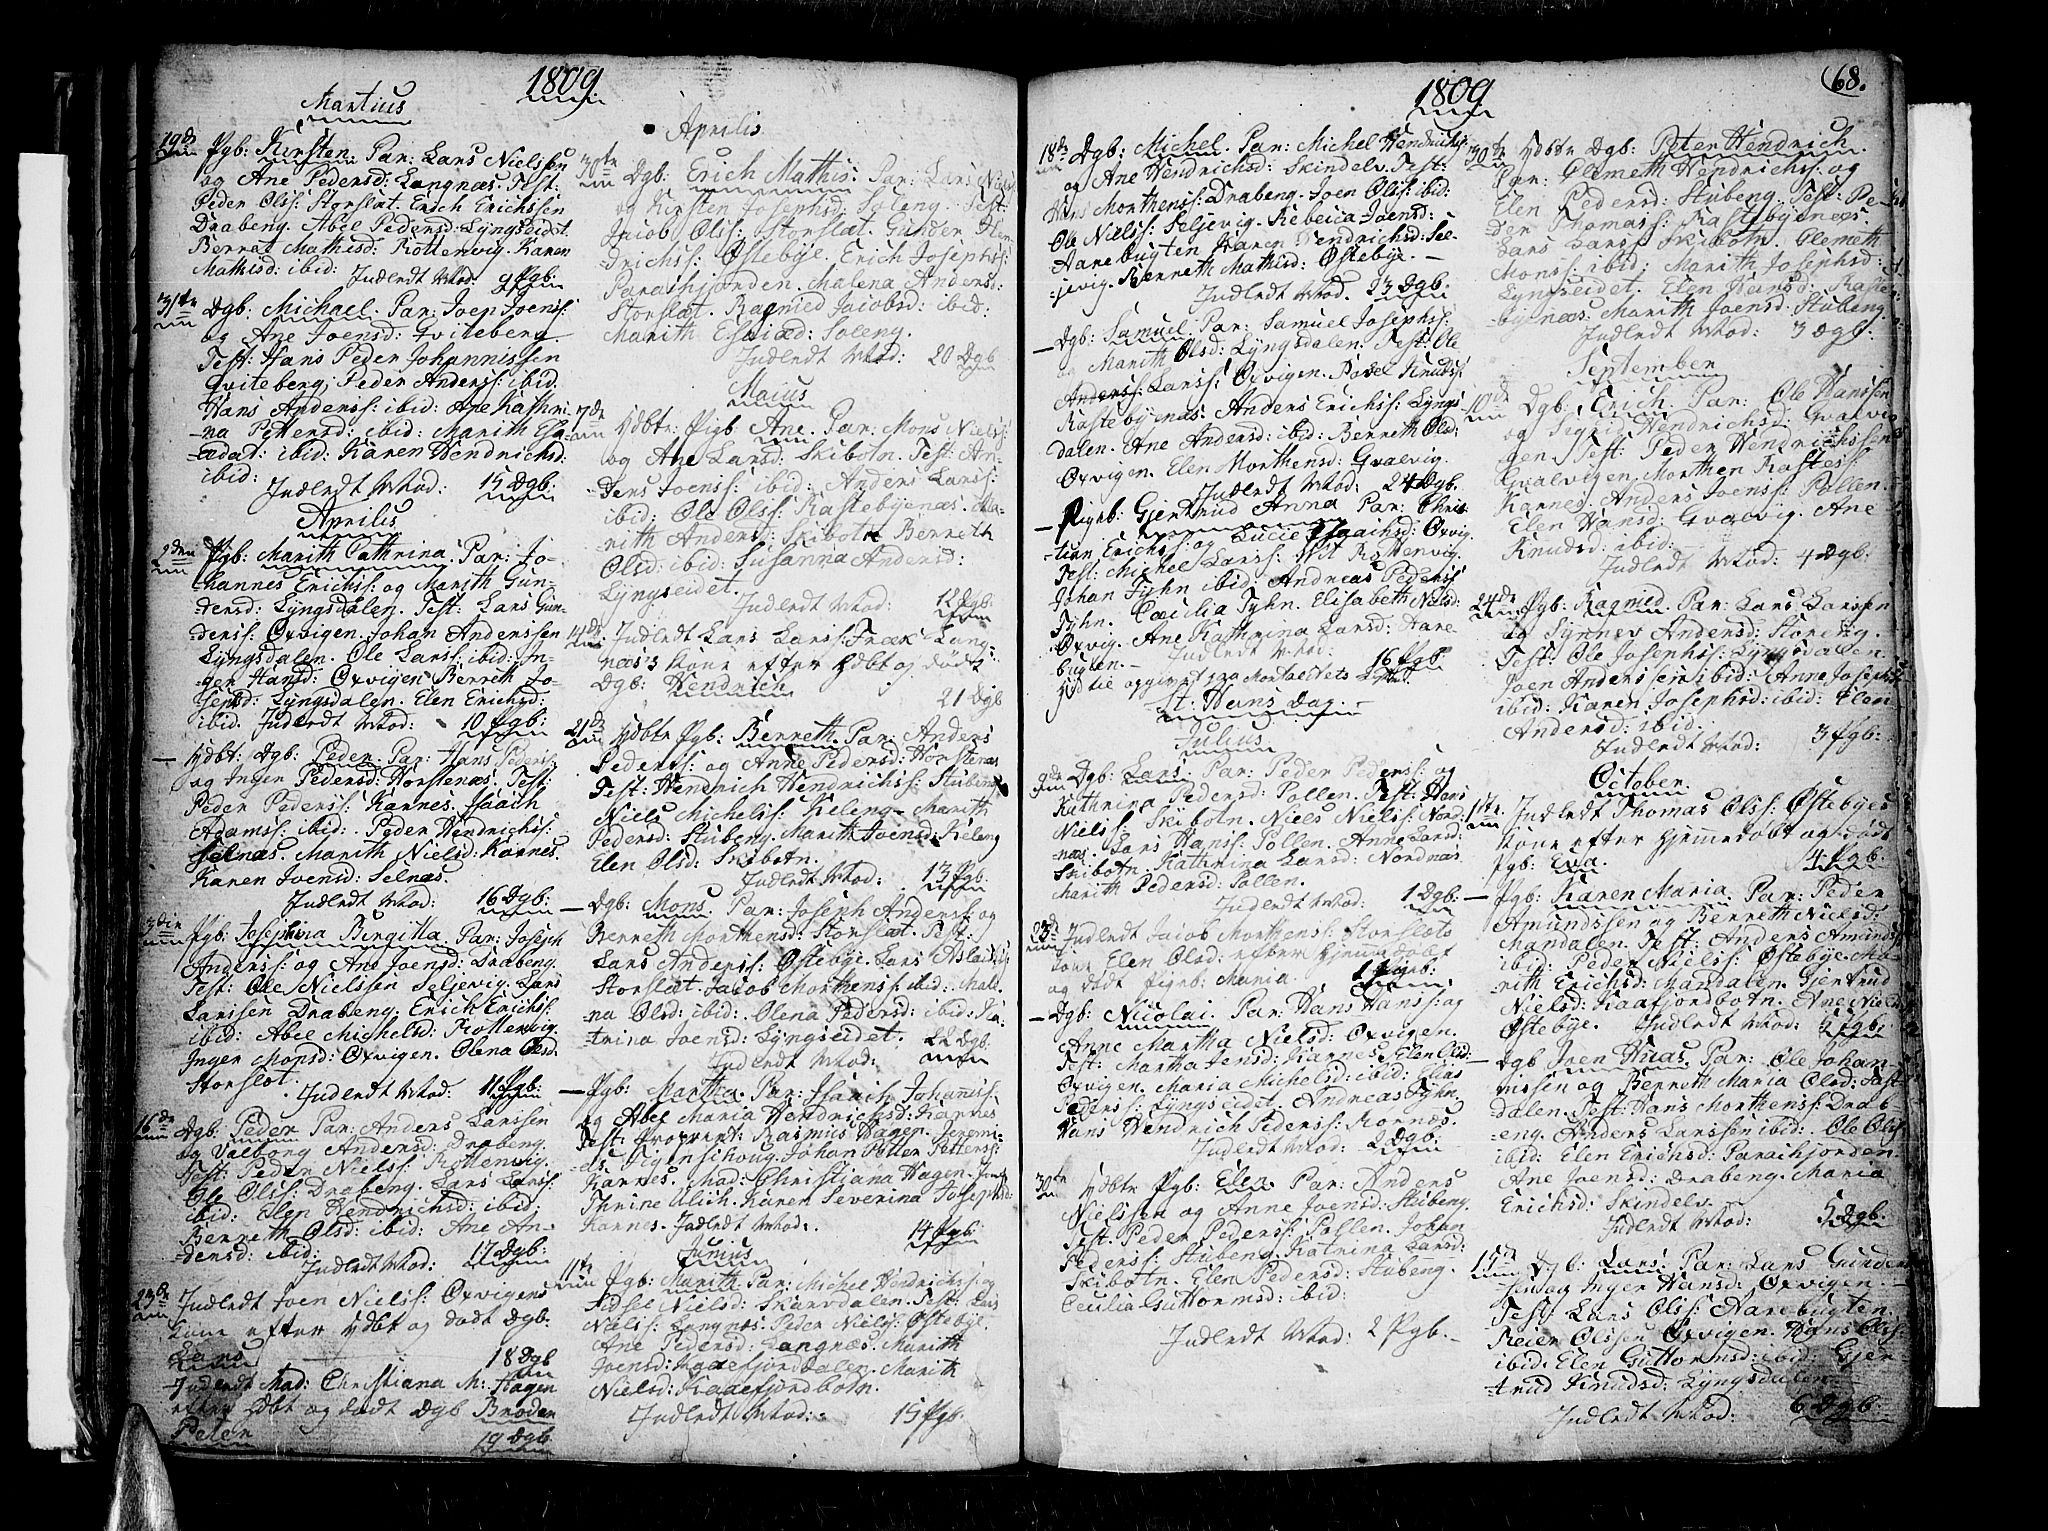 1809
Martius
19de Pgb: Kirsten. Par: Lars Nielsen
og Ane Pedersd: Langnæs. Test:
Peder Olss: Storslæt. Erich Erichssen
Drabeng. Abel Pedersd: Lyngsēidet.
Berret Mathisd: Rottenvig. Karen
Mathisd: ibid: Indledt Mod: 9 Pgb:
31te Dgb: Michael. Par: Joen Joenss:
og Ane Joensd: Qviteberg
Test: Hans Peder Johannissen
Qviteberg, Peder Anderss: ibid.
Hans Anderss: ibid: Ane Kathri-
-na Pettersd: ibid: Marith Esa-
ibid: Karen Hendrichsd:
ibid: Indledt Mod: 15 Dgb.
Aprilis
2den Pgb: Marith Cathrina. Par: Jo-
hannes Erichss: og Marith Gun-
dersd: Lyngsdalen. Test: Lars Gun-
derss: Oxvigen. Johan Anderssen
Lyngsdalen. Ole Larss: ibid: In-
ger Hansd: Oxvigen Berreth Jo-
sepsd: Lyngsdalen. Elen Erichsd:
ibid. Indledt Mod: 10 Pgb:
— Hdbt: Dgb: Peder. Par: Hans Peders:
og Inger Pedersd: Horsenæs. Test:
Peder Pederss: Karnes. Isaach
Adamss: ibid: Peder Hendrichss:
Selnæs. Marith Nielsd: Karnes.
Karen Joensd: Selnæs.
Indledt Mod: 16 Dgb:
Pgb: Josephina Birgitta. Par: Joseph
Anderss: og Ane Joensd: Drabeng.
Test: Ole Nielssen Seljevig. Lars
Larssen Drabeng. Erich Erichss:
ibid: Abel Michelsd: Rottenvig.
Inger Monsd: Oxvigen. Olena Olsd:
Storslæt. Indledt Mod: 11 Pgb:
16de Dgb: Peder Par: Anders Larssen
og Valborg Andersd: Drabeng.
Test: Peder Nielss: Rottenvig.
Ole Olss: Drabeng. Lars Larss:
ibid: Elen Hendrichsd: ibid:
Berreth Olsd: ibid: Ane An-
dersd: ibid: 17 Dgb:
Indledt Mod:
23de Indledt Joen Nielss: Oxvigens
Kone efter Hdbt og dødt Dgb:
18 Dgb
Indledt Mad: Christiana M: Hagen
efter Hdbt og dødt Dgb Broder
Peter 19 Dgb
Aprilis
30te Dgb: Erich Mathis: Par: Lars Niels:
og Kirsten Josephsd: Soleng. Test:
Jacob Olss: Storslæt. Gunder Hen-
drichss: Østebye. Erich Josephss:
Parasfjorden. Malena Andersd:
Storslæt. Ragnied Jacobsd: ibid:
Marith Soleng.
Indledt Mod: 20 Dgb
Maius
7de Hdbtr: Pigb. Ane. Par: Mons Nielss:
og Ane Larsd: Skibotn. Test: An-
ders Joenss: ibid: Anders Larss:
ibid: Ole Olss: Kastebyenæs. Ma-
rith Andersd: Skibotn Berreth
Olsd: ibid: Susanna Andersd:
Lyngseidet.
Indledt Mod: 12 Dgb:
14de Indledt Lars Larss: Træk: Lang-
næs's Kone efter Hdbt og dødt
Dgb: Hendrich 21 Dgb
21de Hdbtr Pgb: Berreth. Par: Anders
Pederss: og Anne Pedersd: Horsenæs
Test: Hendrich Hendrichss: Stubeng
Niels Michelss: Kieleng Marith
Pedersd: Stubeng. Marith Joensd: Kieleng
Elen Olsd: Skibotn.
Indledt Mod: 13 Pgb:
— Dgb: Mons Par: Joseph Anderss: og
Berreth Morthensd: Storslæt. Test:
Lars Anderss: Østebye. Lars Aslachs:
Storslæt. Jacob Morthenss: ibid: Male-
na Olsd: ibid: Olena Pedersd: ibid: Ka-
trina Joensd: Lyngseidet. 22 Dgb:
Indledt Mod:
— Pgb: Martha. Par: Isaach Johaniss:
og Abel Maria Hendrichsd: Karnes
Test: Propriet: Rasmus Hagen. Jeremi-
as Johan Petter Petterss:
Karnes. Mad: Christiana Hagen.
Thrine Ulich. Karen Severina Josephsd:
Karnes. Indledt Mod: 14 Pgb:
Junius
11te Pgb: Marith. Par: Michel Hendrichss: og
Sidsel Nielsd: Skarvdalen. Test: Lars
Nielss: Langnæs. Peder Nielss: Østebye.
Ane Pedersd: Langnæs. Marith
Joensd: Kaaefjorddalen. Marith
Nielsd: Kaaefjordbotn.
Indledt Mod: 15 Pgb.
1809
68.
18de Dgb: Michel. Par: Michel Hendrichss:
og Ane Hendrichsd: Skindelv. Test:
Hans Morthenss: Drabeng. Joen Olss: ibid:
Ole Nielss: Seljevig. Rebecca Joensd:
Aarebugten Karen Hendrichsd: Sel-
jevig. Berreth Mathisd: Østebye. —
Indledt Mod. 23 Dgb:
— Dgb: Samuel. Par: Samuel Josephss:
og Marith Olsd: Lyngsdalen. Test: Ole
Anderss: Larss: Oxvigen. Povel Knudss:
Kastebyenæs. Anders Erichss: Lyngs
dalen. Ane Andersd: ibid: Berreth Olsd:
Oxvigen. Elen Morthensd: Qvalvig.
Indledt Mod: 24 Dgb.
— Pigeb: Gjertrud Anna Par: Chris-
tian Erichss: og Lucie Isaachsd: Oxvig.
Test: Michel Larss: Rottenvig.
Johan Fyhn ibid: Andreas Pederss:
Fyhn. Cæcilia Fyhn. Elisabeth Nielsd:
Oxvig. Ane Kathrina Larsd: Aare
bugten. — Indledt Mod: 16 Pgb.
Hid til opgivet paa Mortalitets Listen.
St: Hans Dag. —
Julius
9de Dgb: Lars. Par: Peder Pederss: og
Kathrina Pedersd: Pollen. Test: Hans
Nielss: Skibotn. Niels Nielss: Nord-
næs. Lars Hanss: Pollen. Anne Larsd:
Skibotn. Kathrina Larsd: Nordnæs
Marith Pedersd: Pollen.
Indledt Mod: 1 Dgb:
23de Indledt Jacob Morthenss: Storslets
Kone Elen Olsd: efter hjemmedøbt
og dødt Pigeb: Maria 1 Pgb:
— Dgb: Nicolai. Par: Hans Hanss: og
Anne Martha Nielsd: Oxvigen.
Test: Martha Jensd: Karnes. Elen Olsd:
Oxvigen. Maria Michelsd: ibid: Elias
Pederss: Lyngseidet. Andreas Fyhn.
Hans Hendrich Pederss: Kornæs.
Indledt Mod: 2 Dgb:
30te Hdbtr Pgb: Elen. Par: Anders
Nielssen og Anne Joensd: Stubeng
Test. Peder Pederss: Pollen. Johan
Pederss: Stubeng. Katrina Larsd:
Skibotn. Elen Pedersd: Stubeng.
Cecilia Guttormsd: ibid:
Indledt Mod: 2 Pgb. —
30te Hdbtr Dgb: Peter Hendrich.
Par: Clemeth Hendrichss: og
Elen Pedersd: Stubeng. Test: Pe-
der Thomass: Kastebyenæs.
Lars Larss: Skibotn. Clemeth
Monss: ibid: Marith Josephsd:
Lyngseidet. Elen Hansd: Kaste-
byenæs. Marith Joensd: Stubeng
Indledt Mod: 3 Dgb:
September
10de Dgb: Erich. Par: Ole Hanssen
og Sigrid Hendrichsd: Qvalvig
gen Test: Peder Hendrichssen
Qvalvigen. Morthen Kastes:
Karnes. Anders Joenss: Pollen.
Elen Hansd: Qvalvig. Ane
Knudsd: ibid:
Indledt Mod: 4 Dgb:
24de Pgb: Ragnied. Par: Lars Larssen
og Synnev Andersd: Storeng.
Test: Ole Josephss: Lyngsdalen.
Joen Anderssen ibid: Anne Josephsd:
ibid: Karen Josephsd: ibid: Elen
Andersd: ibid:
Indledt Mod: 3 Pgb:
October
1ste Indledt Thomas Olss: Østebyes
Kone efter hjemmedøbt og dødt
Pgb: Eva. 4 Pgb:
— Pgb: Karen Maria. Par: Peder
Amundssen og Berreth Nielsd:
Mandalen. Test: Anders Amundss:
ibid: Peder Nielss: Østebye. Ma-
rith Erichsd: Mandalen. Gjertrud
Nielsd: Kaafjordbotn. Ane Nielsd:
Østebye. Indledt Mod: 5 Pgb:
— Dgb Joen Par: Ole Johan-
nissen og Berreth Maria Olsd:
dalen. Test: Hans Morthenss: Drab-
eng. Anders Larssen ibid: Ole Olss:
ibid: Elen Erichsd: Parasfjorden.
Ane Joensd: Drabeng. Maria
Erichsd: Skindelv.
Indledt Mod: 5 Dgb:
15de Dgb: Lars. Par: Lars Gunders
sen og Inger Hansd: Oxvigen. —
Test: Lars Olss: Aarebugten.
Peier Olssen Oxvigen. Hans Olss:
ibid: Elen Guttormsd: ibid: Gjer-
trud Knudsd: Lyngsdalen.
Indledt Mod: 6 Dgb: